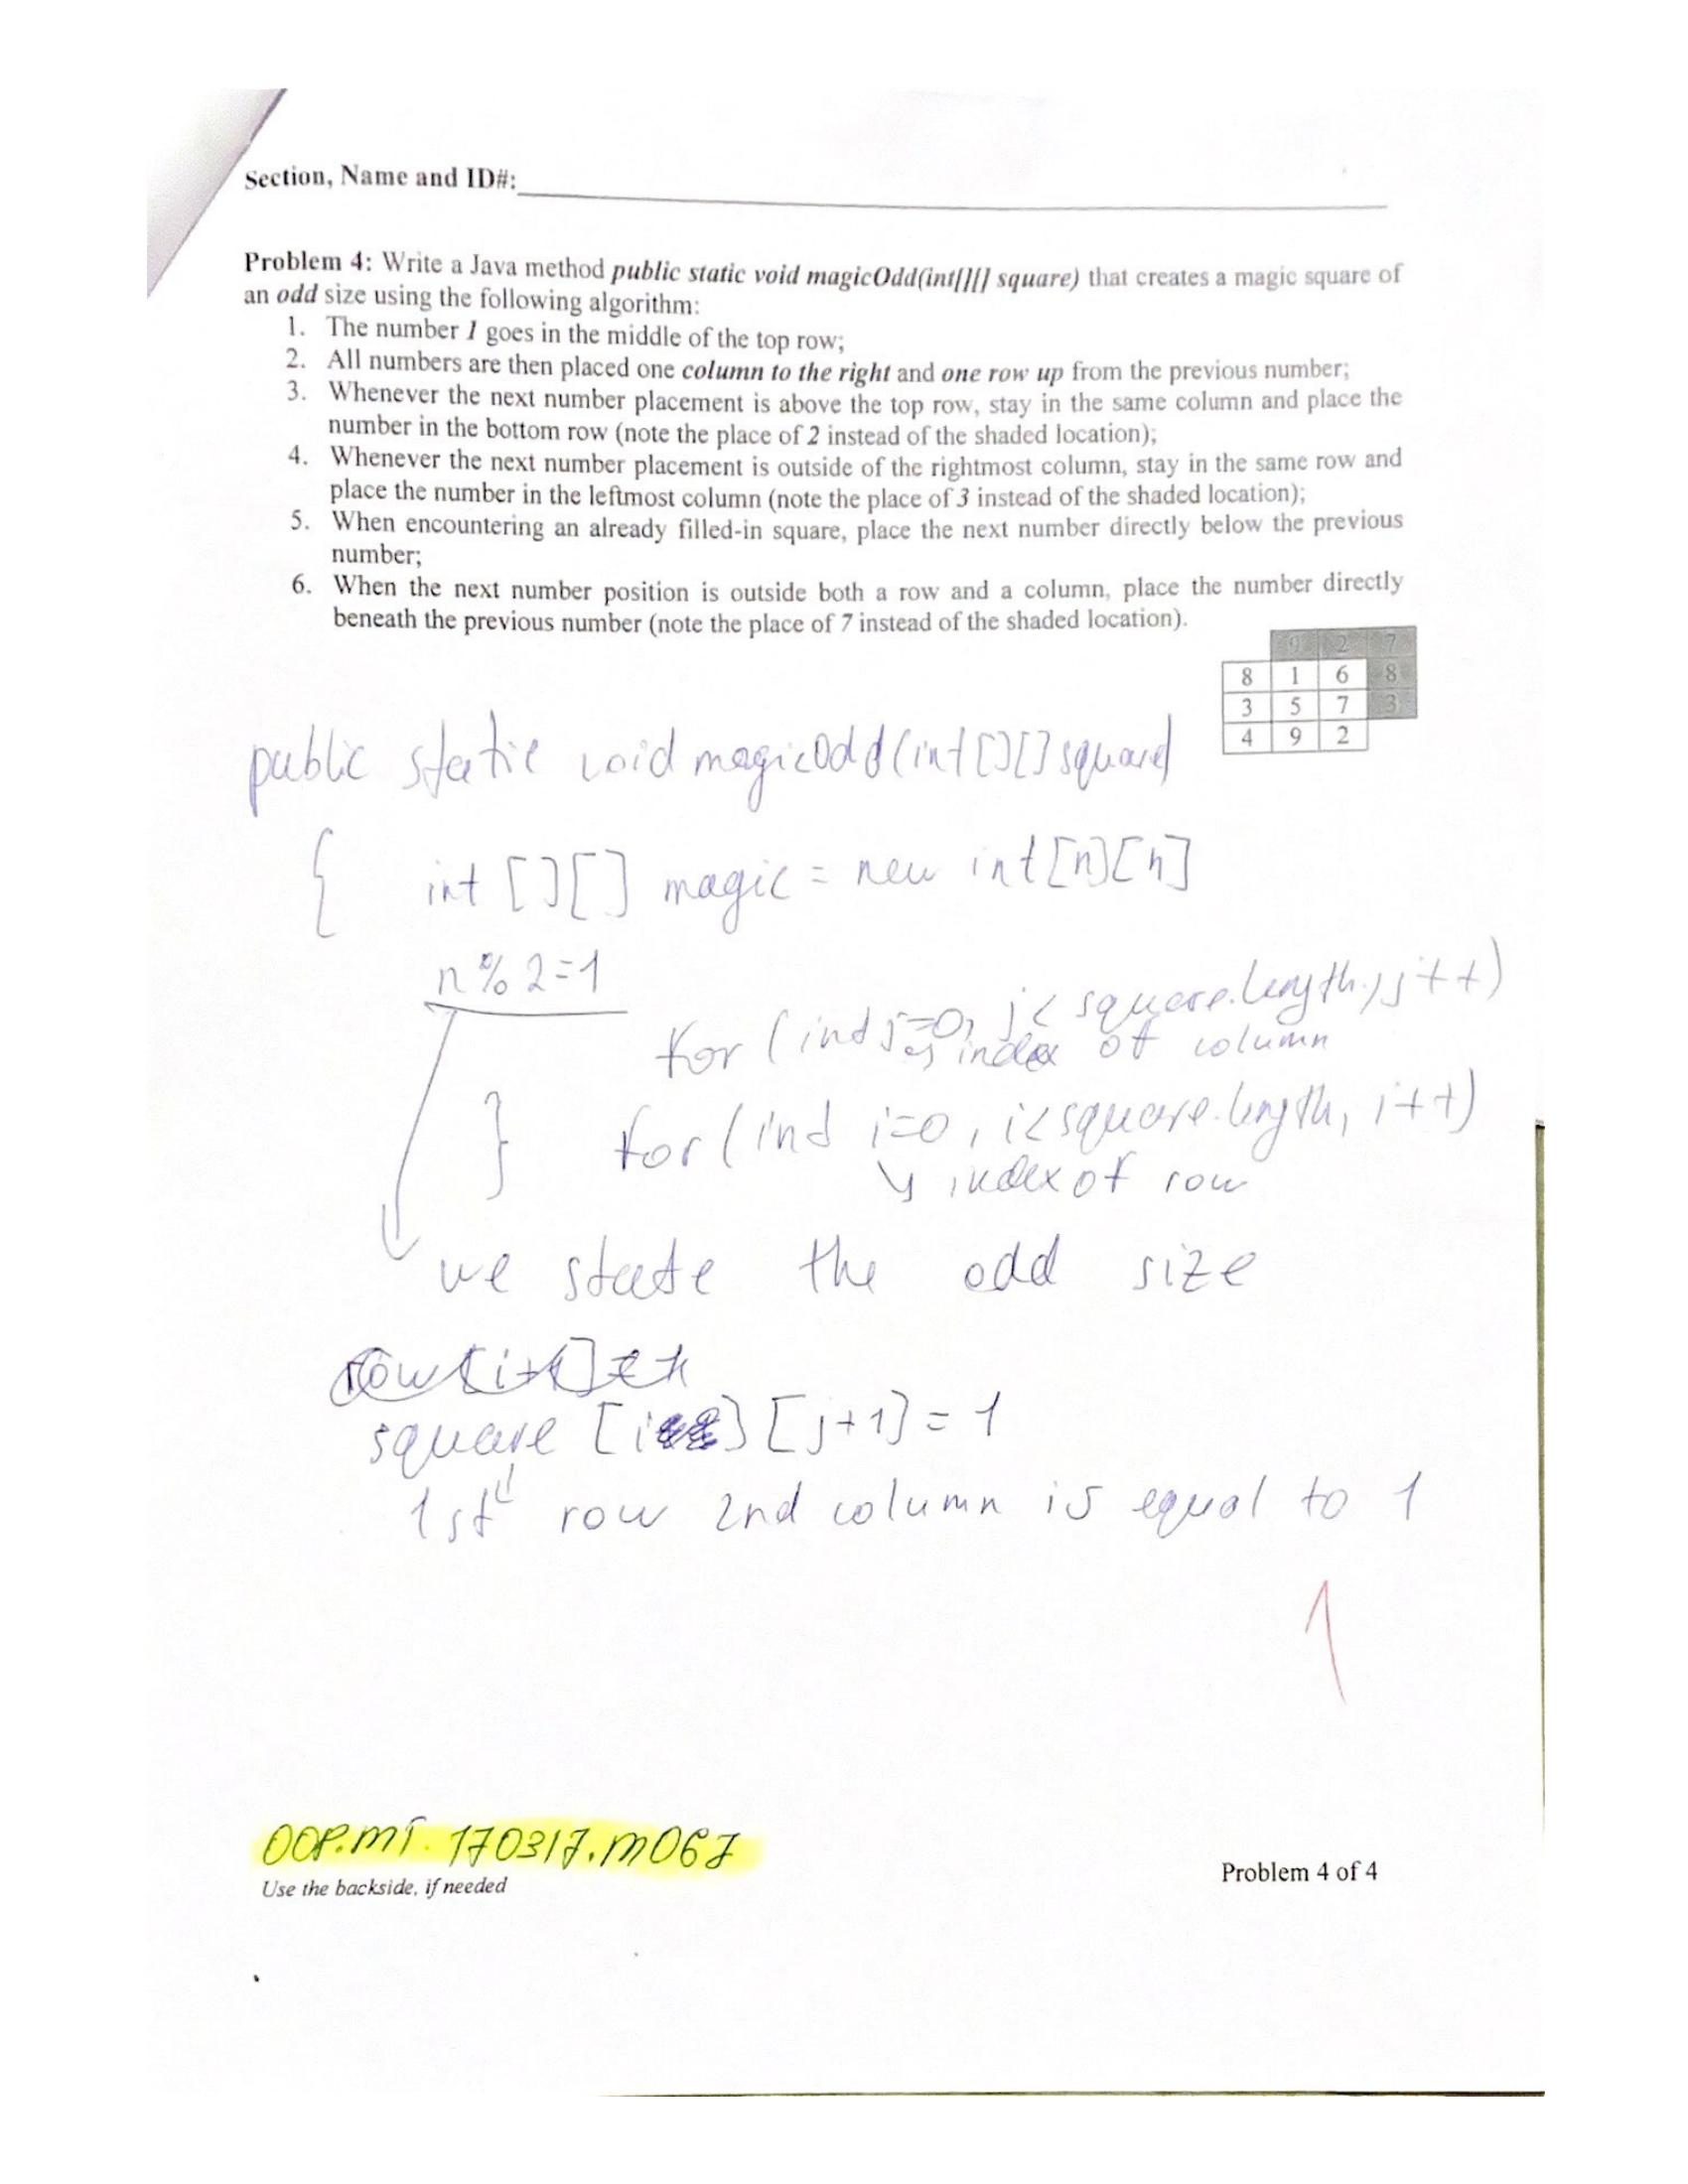 Section, Name and ID#:
Problem 4: Write a Java method public static void magicOdd(int[][] square) that creates a magic square of
an odd size using the following algorithm:
1. The number 1 goes in the middle of the top row;
2. All numbers are then placed one column to the right and one row up from the previous number;
3. Whenever the next number placement is above the top row, stay in the same column and place the
number in the bottom row (note the place of 2 instead of the shaded location);
4. Whenever the next number placement is outside of the rightmost column, stay in the same row and
place the number in the leftmost column (note the place of 3 instead of the shaded location);
5. When encountering an already filled-in square, place the next number directly below the previous
number;
6. When the next number position is outside both a row and a column, place the number directly
beneath the previous number (note the place of 7 instead of the shaded location).
9 2 7
8 1 6 8
3 5 7 3
4 9 2
public static void magicOdd(int[][] square)
{ int [][] magic = new int[n][n]
n%2=1
for (int j=0, j< square.length, j++)
index of column
} for (ind i=0, i<square.length, i++)
index of row
we state the odd size
square [i] [j+1] = 1
1st row 2nd column is equal to 1
1
OOP.MT.170317.M067
Use the backside, if needed
Problem 4 of 4